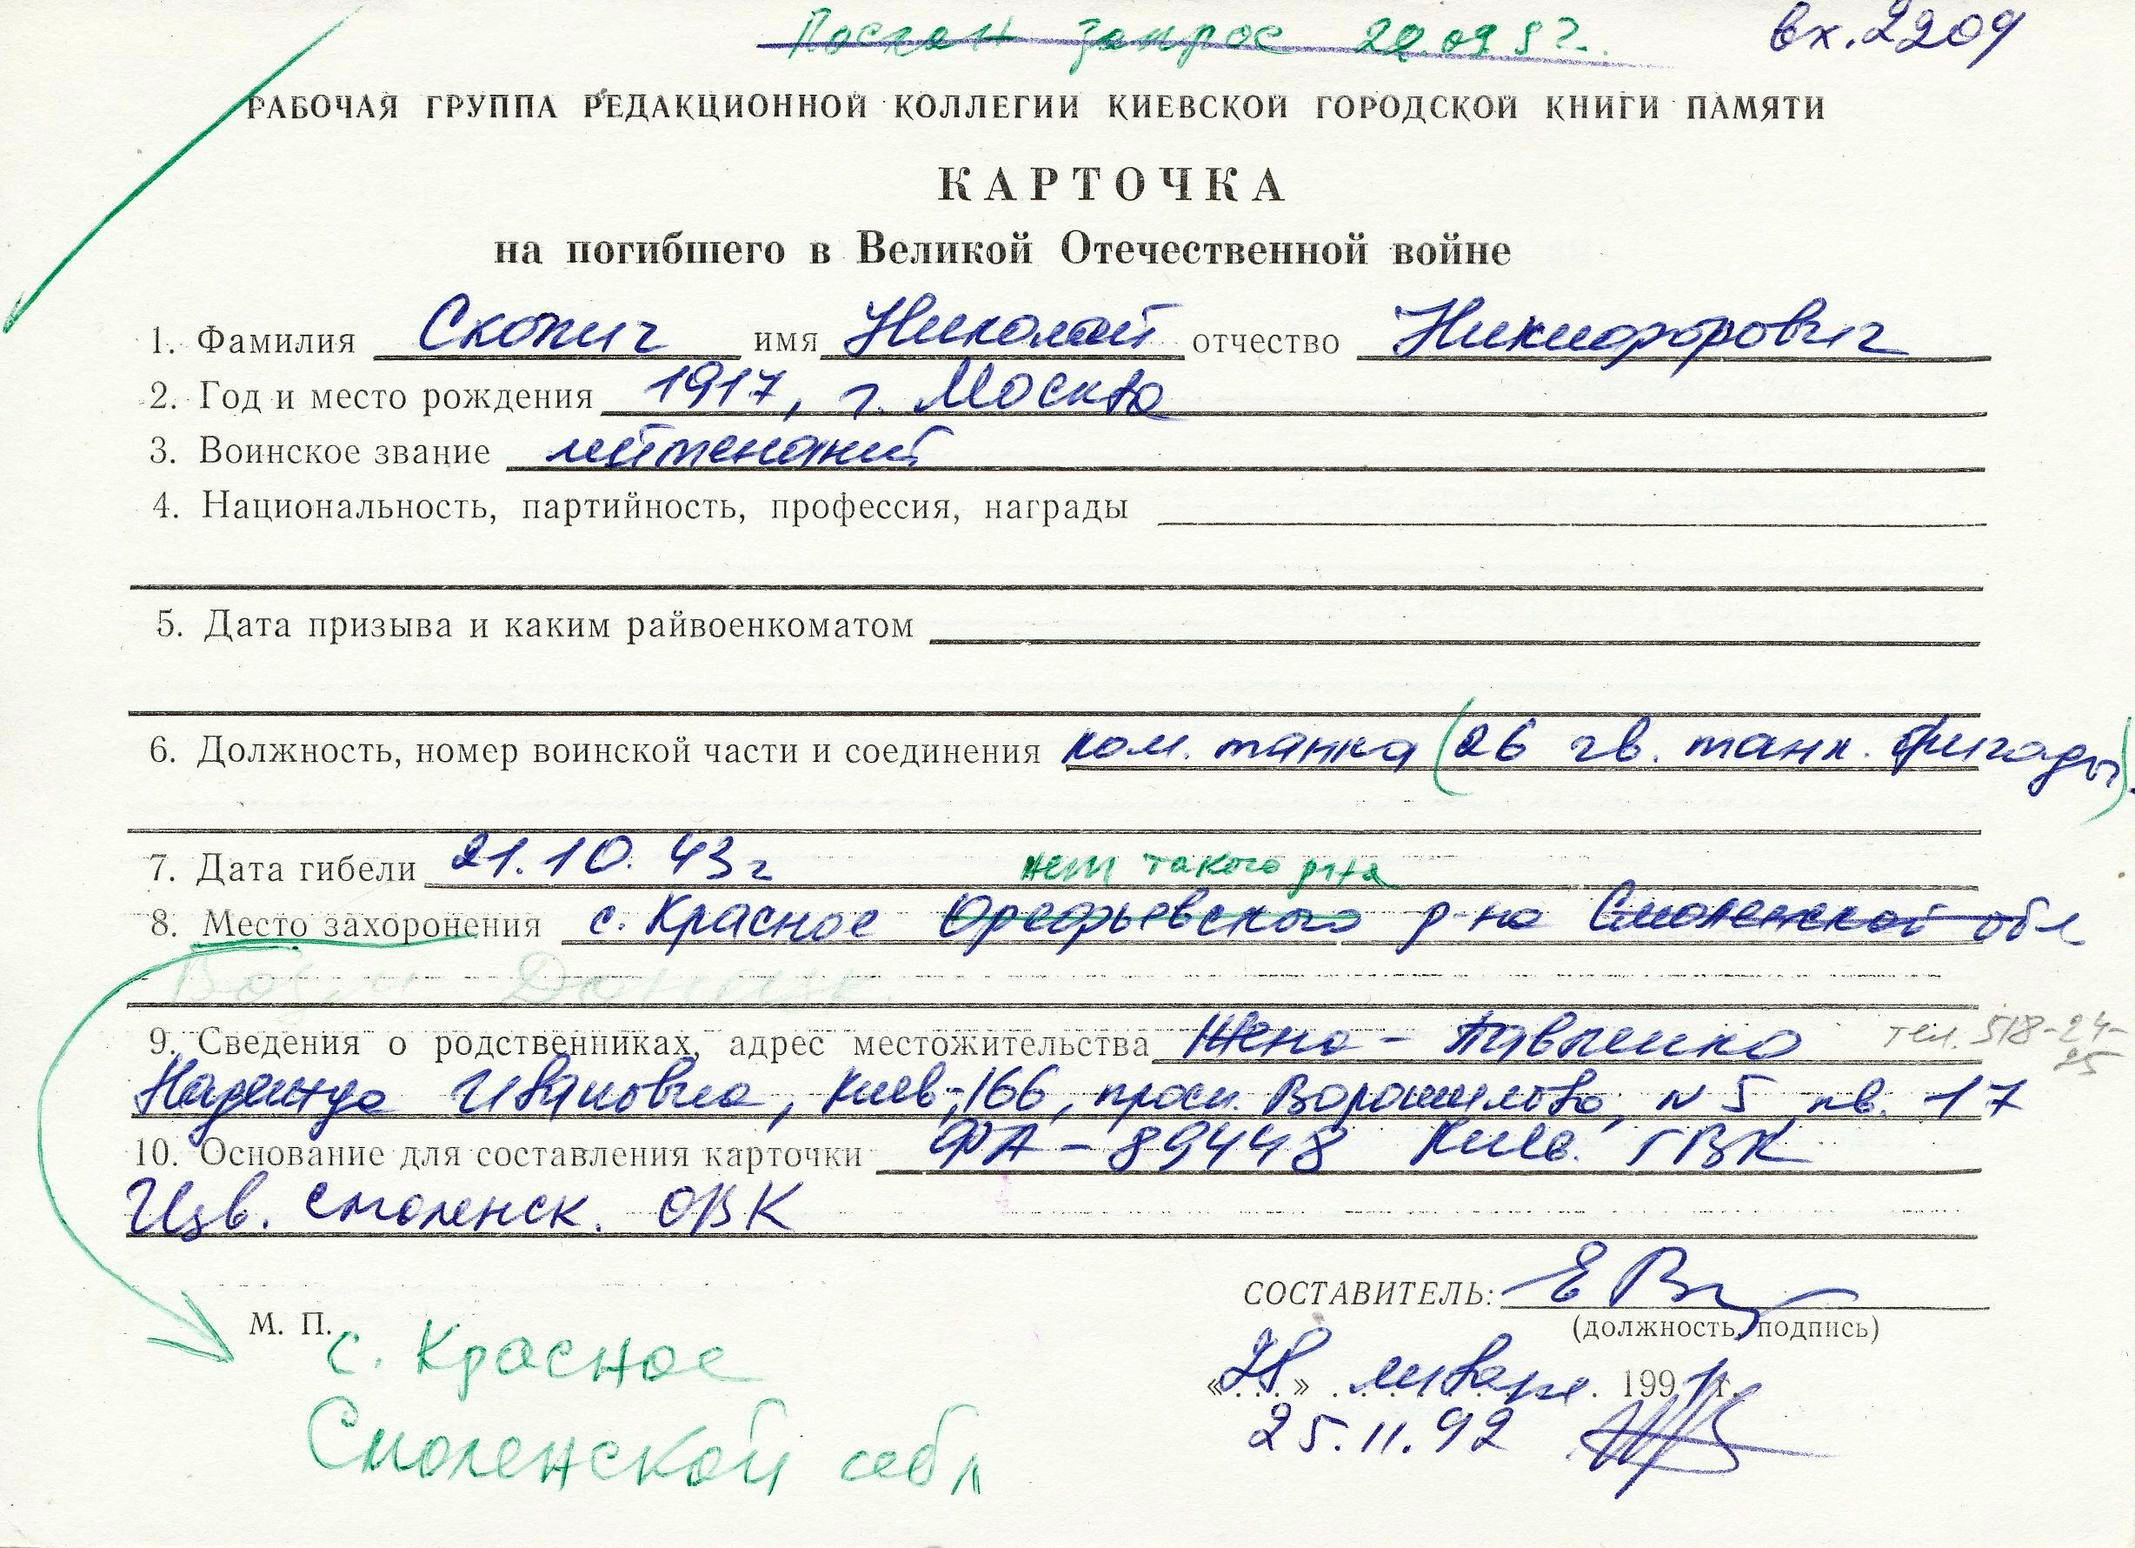 Послан запрос 20.09.92.
вх. 2209
РАБОЧАЯ ГРУППА РЕДАКЦИОННОЙ КОЛЛЕГИИ КИЕВСКОЙ ГОРОДСКОЙ КНИГИ ПАМЯТИ
КАРТОЧКА
на погибшего в Великой Отечественной войне
1. Фамилия Скопич имя Николай отчество Никифорович
2. Год и место рождения 1917, г. Москва
3. Воинское звание лейтенант
4. Национальность, партийность, профессия, награды
5. Дата призыва и каким райвоенкоматом
6. Должность, номер воинской части и соединения ком. танка (26 гв. танк. бригады).
7. Дата гибели 21.10.43 г
нет такого р-на
8. Место захоронения с. Красное р-на Смоленской обл
9. Сведения о родственниках, адрес местожительства Жена - Павленко тел. 518-24-
25
Надежда Ивановна, Киев-166, просп. Ворошилова, N 5 кв. 17
10. Основание для составления карточки ФА-89448 Киев. ГВК
Изв. Смоленск. ОВК
СОСТАВИТЕЛЬ:
(должность, подпись)
М. П.
с. Красное
«28» января 1991 г.
Смоленской обл
25.11.92